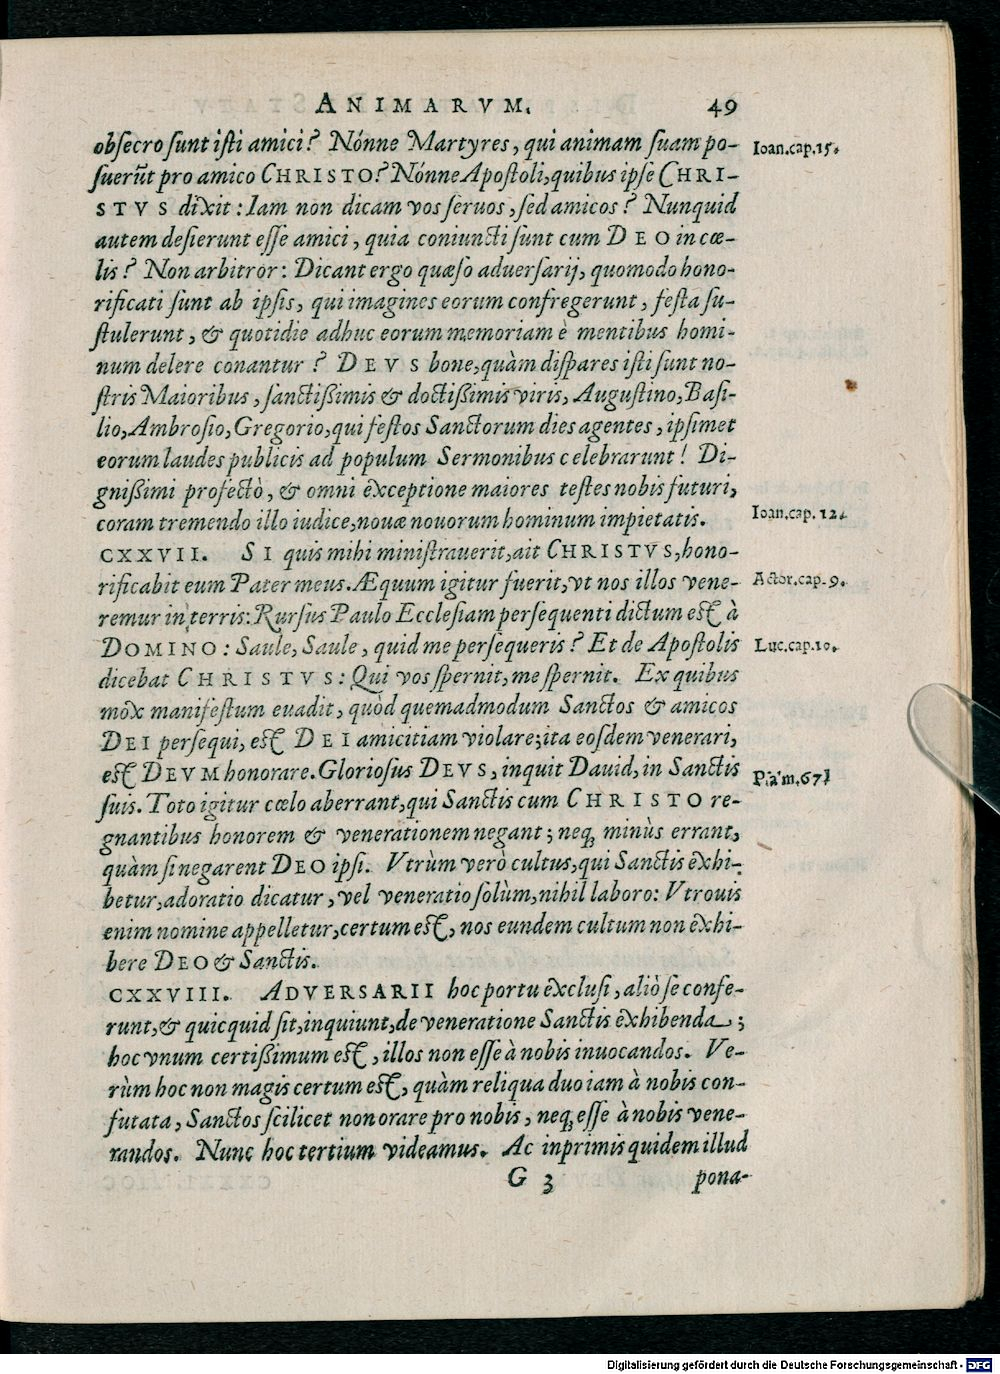 ANIMARVM. 49
obsecro sunt isti amici? Nónne Martyres, qui animam suam po-
Ioan.cap.15.
suerūt pro amico CHRISTO? Nónne Apostoli, quibus ipse CHRI-
STVS dixit: Iam non dicam vos seruos, sed amicos? Nunquid
autem desierunt esse amici, quia coniuncti sunt cum DEO in cœ-
lis? Non arbitror: Dicant ergo quæso aduersarij, quomodo hono-
rificati sunt ab ipsis, qui imagines eorum confregerunt, festa su-
stulerunt, & quotidie adhuc eorum memoriam è mentibus homi-
num delere conantur? DEVS bone, quàm dispares isti sunt no-
stris Maioribus, sanctißimis & doctißimis viris, Augustino, Basi-
lio, Ambrosio, Gregorio, qui festos Sanctorum dies agentes, ipsimet
eorum laudes publicis ad populum Sermonibus celebrarunt! Di-
gnißimi profectò, & omni exceptione maiores testes nobis futuri,
coram tremendo illo iudice, nouæ nouorum hominum impietatis.
Ioan.cap.12.
CXXVII. SI quis mihi ministrauerit, ait CHRISTVS, hono-
rificabit eum Pater meus. Æquum igitur fuerit, vt nos illos vene-
Actor.cap.9.
remur in terris: Rursus Paulo Ecclesiam persequenti dictum est à
DOMINO: Saule, Saule, quid me persequeris? Et de Apostolis
Luc.cap.10.
dicebat CHRISTVS: Qui vos spernit, me spernit. Ex quibus
mox manifestum euadit, quòd quemadmodum Sanctos & amicos
DEI persequi, est DEI amicitiam violare; ita eosdem venerari,
est DEVM honorare. Gloriosus DEVS, inquit Dauid, in Sanctis
Psalm.67.
suis. Toto igitur cœlo aberrant, qui Sanctis cum CHRISTO re-
gnantibus honorem & venerationem negant; neq; minùs errant,
quàm si negarent DEO ipsi. Vtrùm verò cultus, qui Sanctis exhi-
betur, adoratio dicatur, vel veneratio solùm, nihil laboro: Vtrouis
enim nomine appelletur, certum est, nos eundem cultum non exhi-
bere DEO & Sanctis.
CXXVIII. ADVERSARII hoc portu exclusi, aliò se confe-
runt, & quicquid sit, inquiunt, de veneratione Sanctis exhibenda;
hoc vnum certißimum est, illos non esse à nobis inuocandos. Ve-
rùm hoc non magis certum est, quàm reliqua duo iam à nobis con-
futata, Sanctos scilicet non orare pro nobis, neq; esse à nobis vene-
randos. Nunc hoc tertium videamus. Ac inprimis quidem illud
G 3 pona-
Digitalisierung gefördert durch die Deutsche Forschungsgemeinschaft - DFG